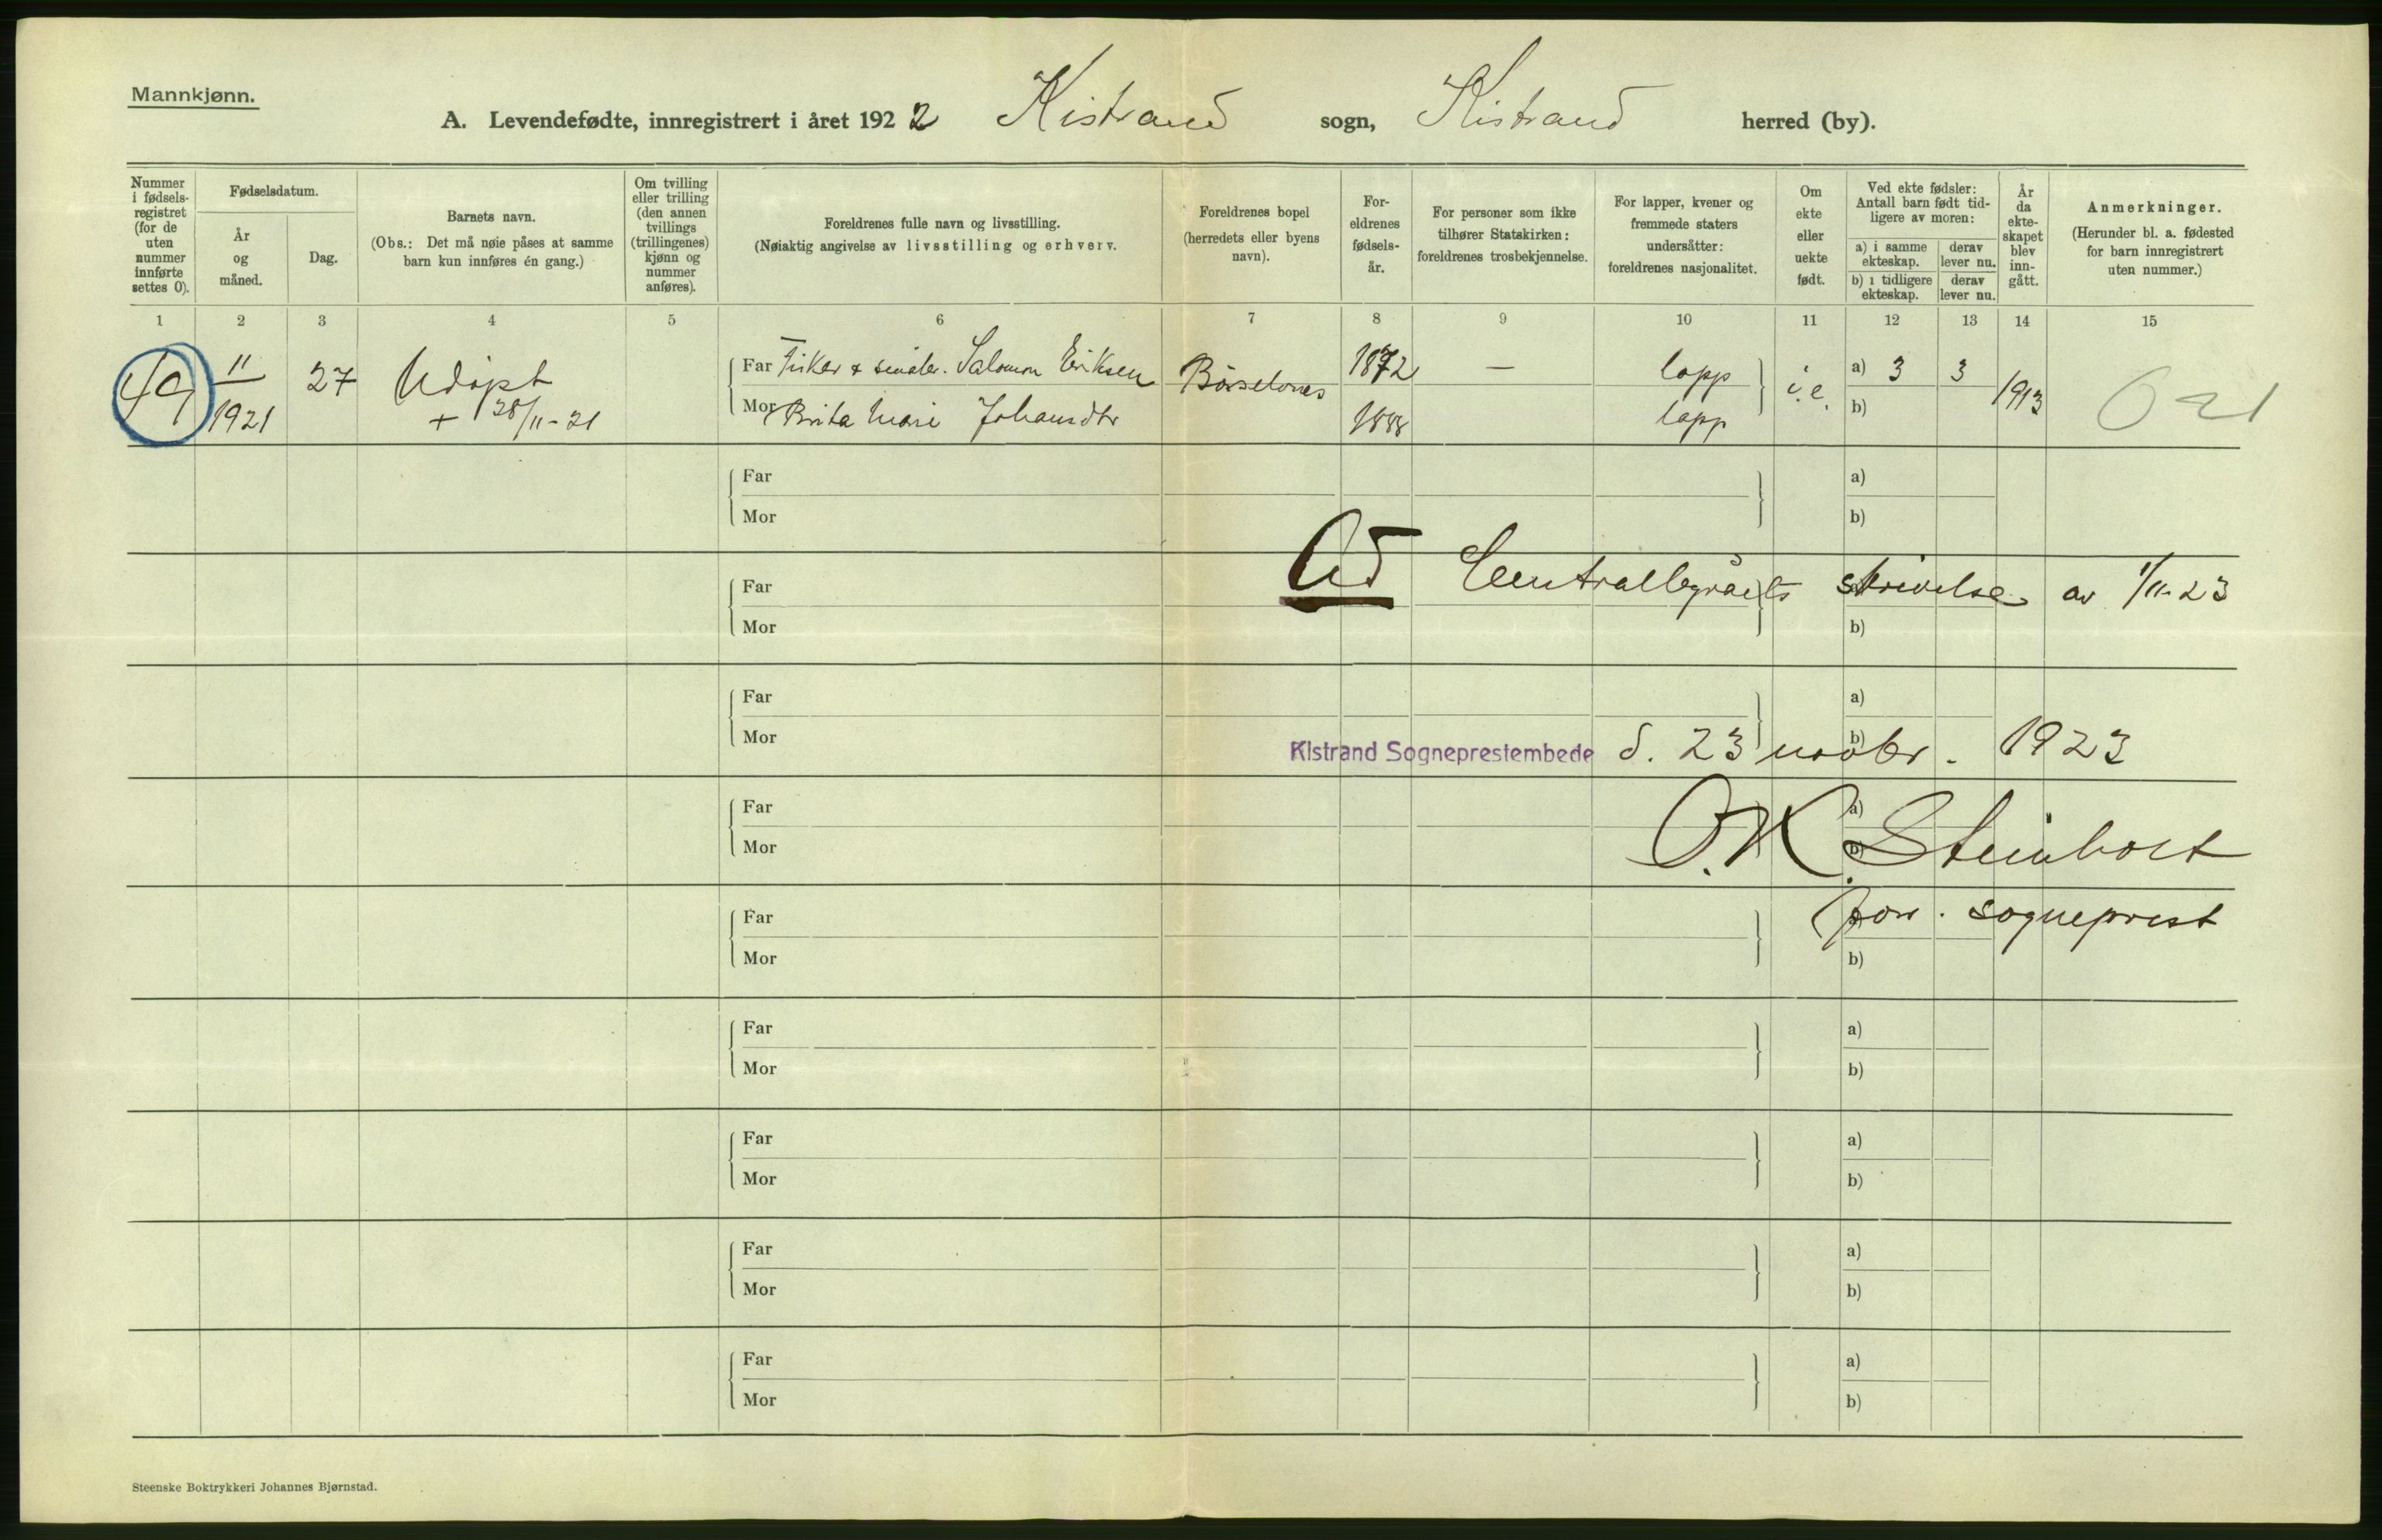 Mannkjønn.
A. Levendefødte, innregistrert i året 1922 Kistrand sogn, Kistrand herred (by).
Nummer i fødsels-registret (for de uten nummer innførte settes 0).
Fødselsdatum.
År og måned.
Dag.
Barnets navn.
(Obs.: Det må nøie påses at samme barn kun innføres én gang.)
Om tvilling eller trilling (den annen tvillings (trillingenes) kjønn og nummer anføres).
Foreldrenes fulle navn og livsstilling.
(Nøiaktig angivelse av livsstilling og erhverv.
Foreldrenes bopel (herredets eller byens navn).
For-eldrenes fødsels-år.
For personer som ikke tilhører Statskirken: foreldrenes trosbekjennelse.
For lapper, kvener og fremmede staters undersåtter: foreldrenes nasjonalitet.
Om ekte eller uekte født.
Ved ekte fødsler: Antall barn født tid-ligere av moren:
a) i samme ekteskap. derav lever nu.
b) i tidligere ekteskap. derav lever nu.
År da ekte-skapet blev inn-gått.
Anmerkninger.
(Herunder bl. a. fødested for barn innregistrert uten nummer.)
1 2 3 4 5 6 7 8 9 10 11 12 13 14 15
49 11 1921 27 Udøpt
+ 28/11-21
Far Fisker & Salomon Eriksen 1872 — lapp i.e. a) 3 3 1913
Mor Brita Mari Johansdtr 1888 lapp b)
021
Far a)
Mor b)
Ad Centralbyråets skrivelse av 1/11-23
Far
Mor b)
Far a)
Mor b)
Kistrand Sogneprestembede d. 23 novbr. 1923
Far a)
Mor b)
O.K. Steinholt
Far
Mor b)
sogneprest
Far a)
Mor b)
Far a)
Mor b)
Far a)
Mor b)
Far a)
Mor b)
Steenske Boktrykkeri Johannes Bjørnstad.